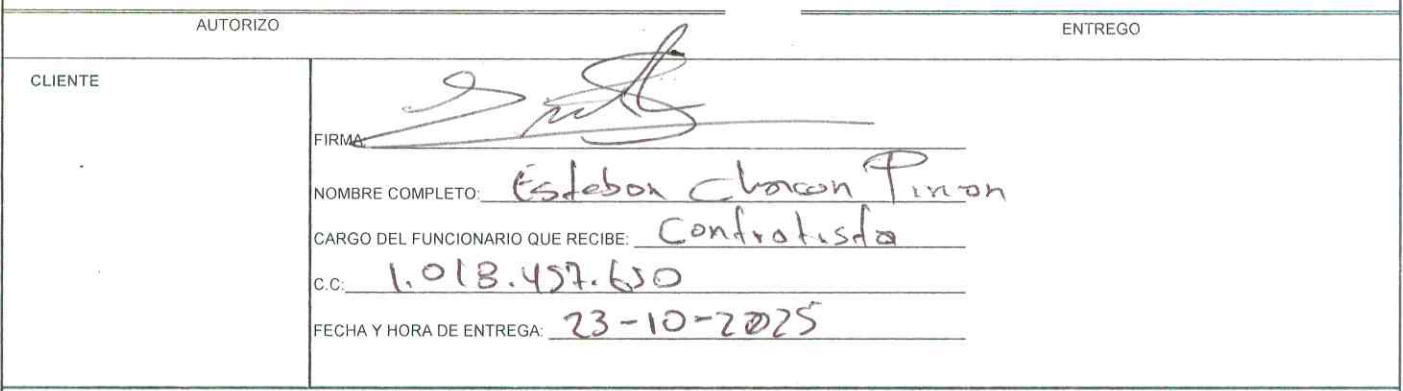 AUTORIZO ENTREGO
CLIENTE
FIRMA:
NOMBRE COMPLETO: Esteban Chacon Pinzon
CARGO DEL FUNCIONARIO QUE RECIBE: Contratista
C.C: 1.018.457.650
FECHA Y HORA DE ENTREGA: 23-10-2025